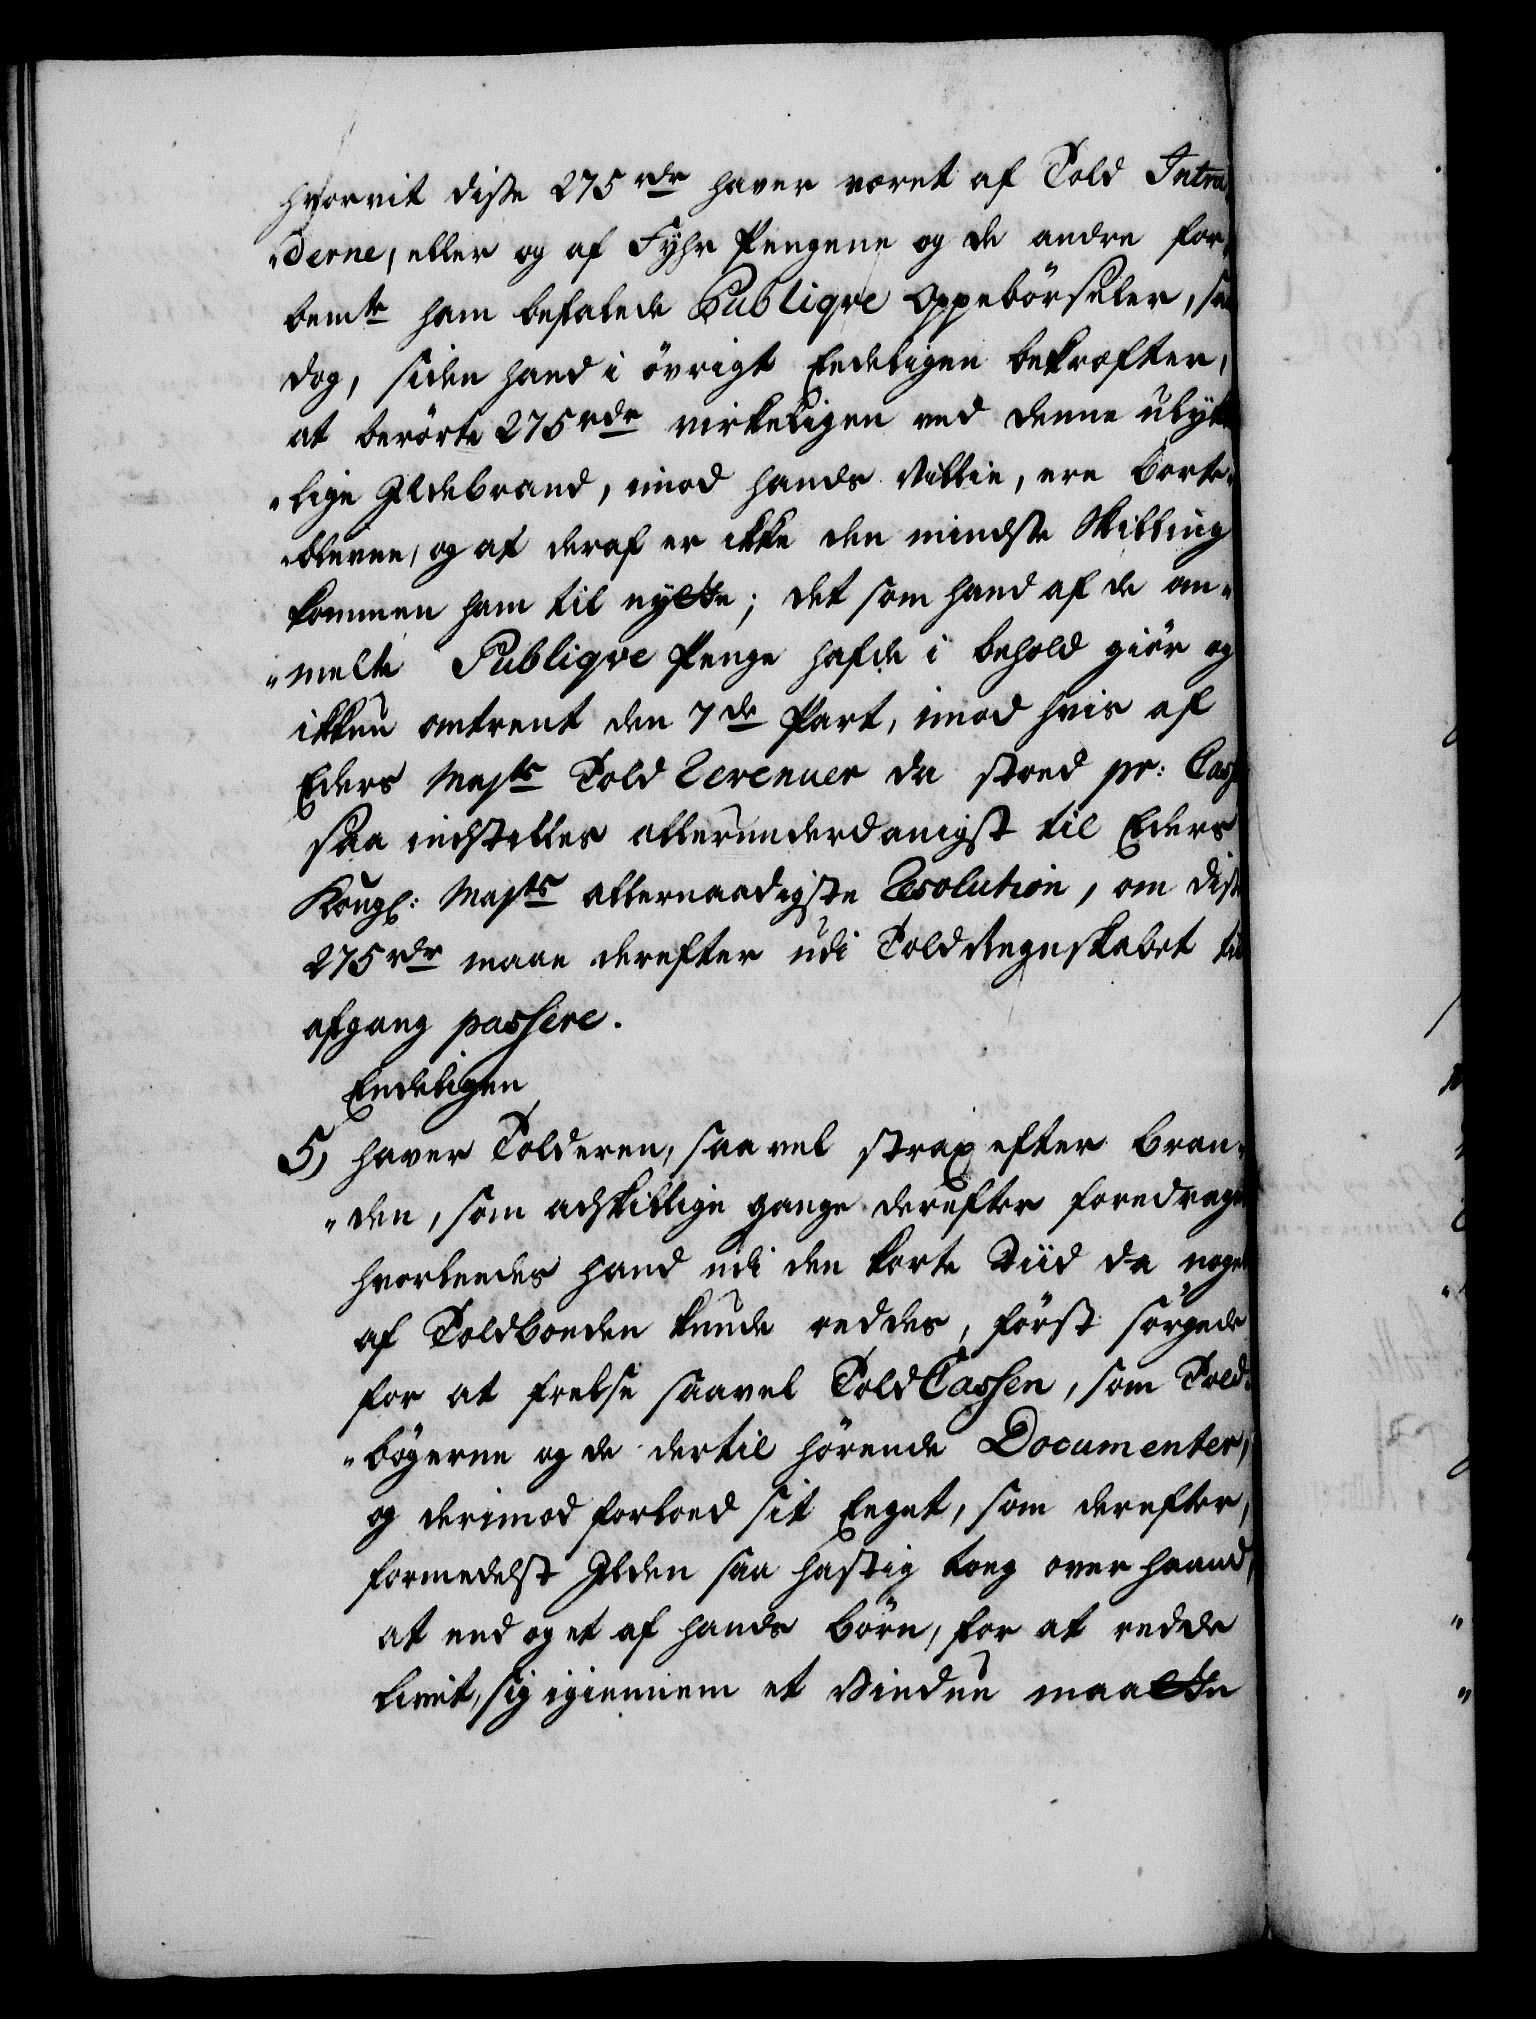 hvorvit disse 275 rdr haver været af Told Intra
„derne, eller og af Fyhr Pengene og de andre for„
bemte ham befalede Publiqve Oppebörseler, saa
dog, siden hand i övrigt Eedeligen bekræfter,
at berörte 275 rdr virkeligen ved denne ulyk
„lige Ildebrand, imod hands Villie, ere borte„
„blevne, og at deraf er ikke den mindste Skilling
kommen ham til nytte; det som hand af de an„
„melte Publiqve Penge hafde i behold giör og
ikkun omtrent den 7de Part, imod hvis af
Eders Mayts Told Revenuer da stoed pr: Cass
saa indstilles allerunderdanigst til Eders
Kongl: Mayts allernaadigste Resolution, om disse
275 rdr maae derefter udi Told Regnskabet til
afgang passere.
Endeligen
5) haver Tolderen, saa vel strax efter bran„
„den, som adskillige gange derefter foredraget
hvorleedes hand udi den korte Tiid da noget
af Toldboeden kunde reddes, först sörgede
for at frelse saavel Told Cassen, som Told„
„bögerne og de dertil hörende Documenter,
og derimod forloed sit Eeget, som derefter,
formedelst Ilden saa hastig toeg over haand,
at end og et af hands börn, for at redde
livet, sig igiennem et Vindue maatte